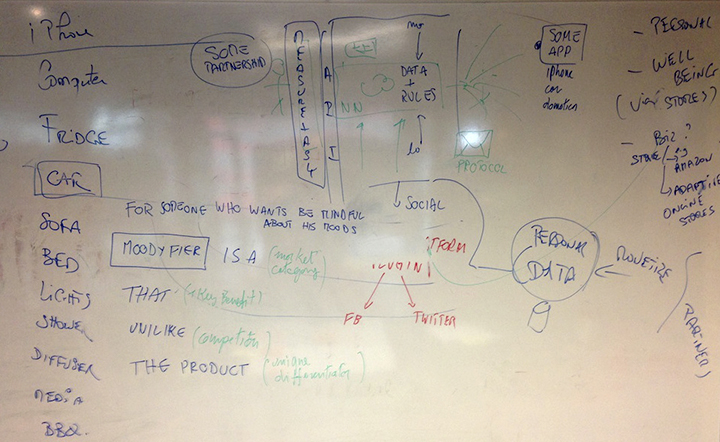 iPhone
Computer
FRIDGE
CAR
SOFA
BED
LIGHTS
SHOWER
DIFFUSER
MEDIA
BBQ.
SOME
PARTNERSHIP
MEASURETASY
API
NN
DATA
+
RULES
SOCIAL
PROTOCOL
SOME
APP
iphone
car
domotica
- PERSONAL
- WELL
BEING
STORES))
- BIZ ?
STORE
AMAZON
ADAPTIVE
ONLINE
STORES
FOR SOMEONE WHO WANTS BE MINDFUL
ABOUT HIS MOODS
MOODYFIER IS A (market
category)
THAT (key benefit)
UNILIKE (competion)
THE PRODUCT (unique
differentiator)
PLUGIN
FB TWITTER
PERSONAL
DATA
MONETIZE
PARTNER)